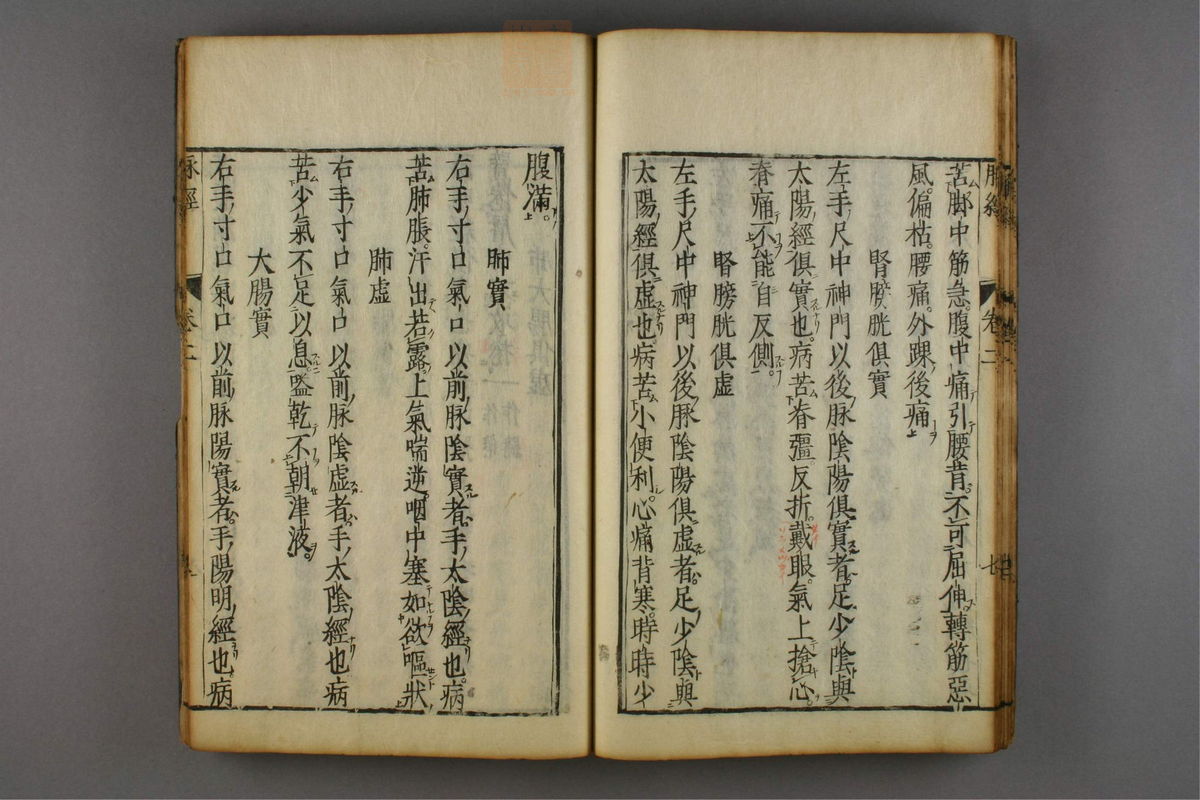 脉經 卷二 七
苦脚中筋急腹中痛引腰背不可屈伸轉筋惡
風偏枯腰痛外踝後痛
腎膀胱俱實
左手尺中神門以後脉陰陽俱實者足少陰與
太陽經俱實也病苦脊彊反折戴眼氣上搶心
脊痛不能自反側
腎膀胱俱虚
左手尺中神門以後脉陰陽俱虚者足少陰與
太陽經俱虚也病苦小便利心痛背寒時時少
腹滿
肺實
右手寸口氣口以前脉陰實者手太陰經也病
苦肺脹汗出若露上氣喘逆咽中塞如欲嘔狀
肺虚
右手寸口氣口以前脉陰虚者手太陰經也病
苦少氣不足以息嗌乾不朝津液
大腸實
右手寸口氣口以前脉陽實者手陽明經也病
脉經 卷二